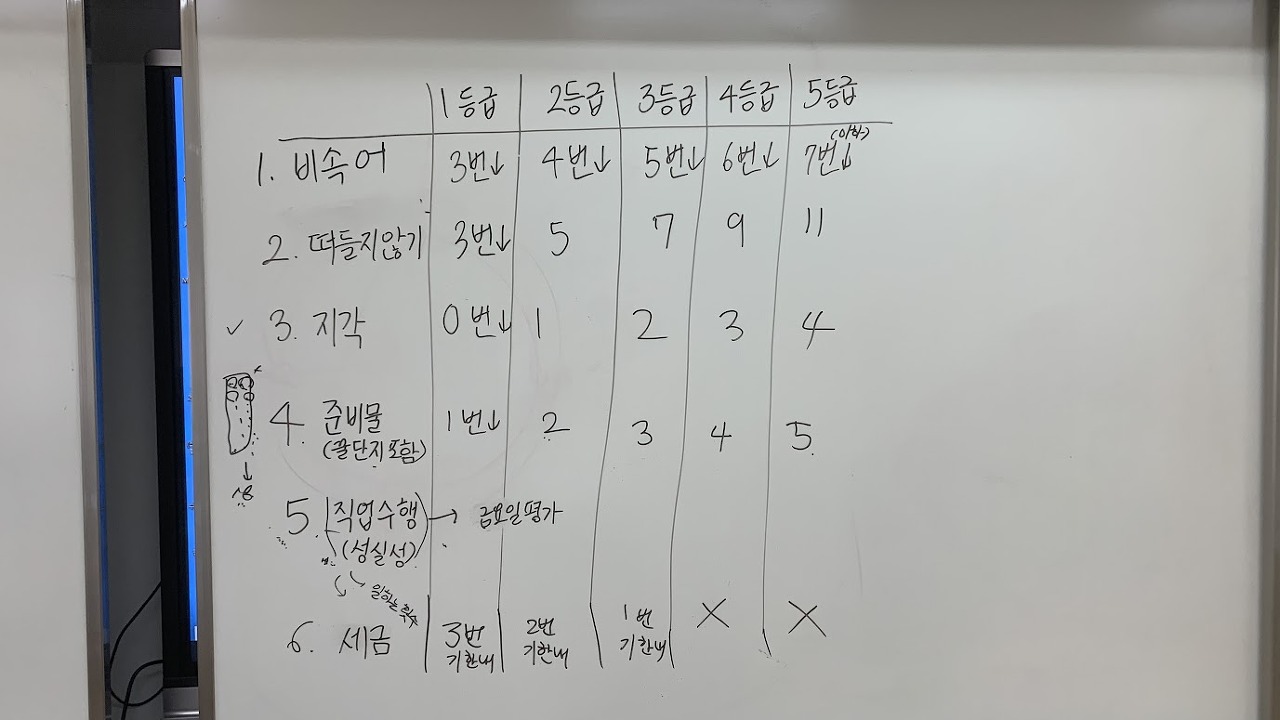 1등급 2등급 3등급 4등급 5등급
(이하)
1. 비속어 3번↓ 4번↓ 5번↓ 6번↓ 7번↓
2. 떠들지않기 3번↓ 5 7 9 11
✓ 3. 지각 0번↓ 1 2 3 4
4. 준비물 1번↓ 2 3 4 5
(꿀단지 포함)
5. 직업수행 → 금요일 평가
(성실성)
일하는 횟수
6. 세금 3번 2번 1번 X X
기한내 기한내 기한내